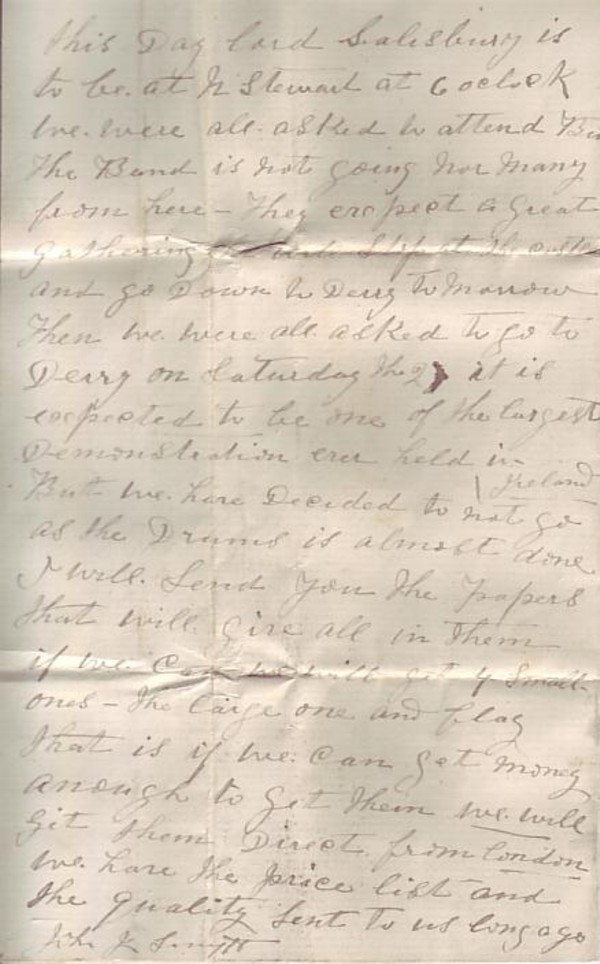 This Day lord Salisbury is
to be. at N Stewart at 6 oclock
We. were all. asked to attend
The Band is not going nor many
from here - They excpect a great
gathering at the
and go Down to Derry to Morrow
Then we were all. asked to go to
Derry on Saturday the it is
excpected to be one of the largest
Demonstration ever held in
Ireland
But we. have Decided to not go
as the Drums is almost done
I will. Send you the papers
that will give all in them
if we. Can we will get 4 Small.
ones - the large one and flag
that is if we. can get money
anough to get them we. will
git them Direct. from london
We. have the price list and
the quality Sent to us long ago
Smyth